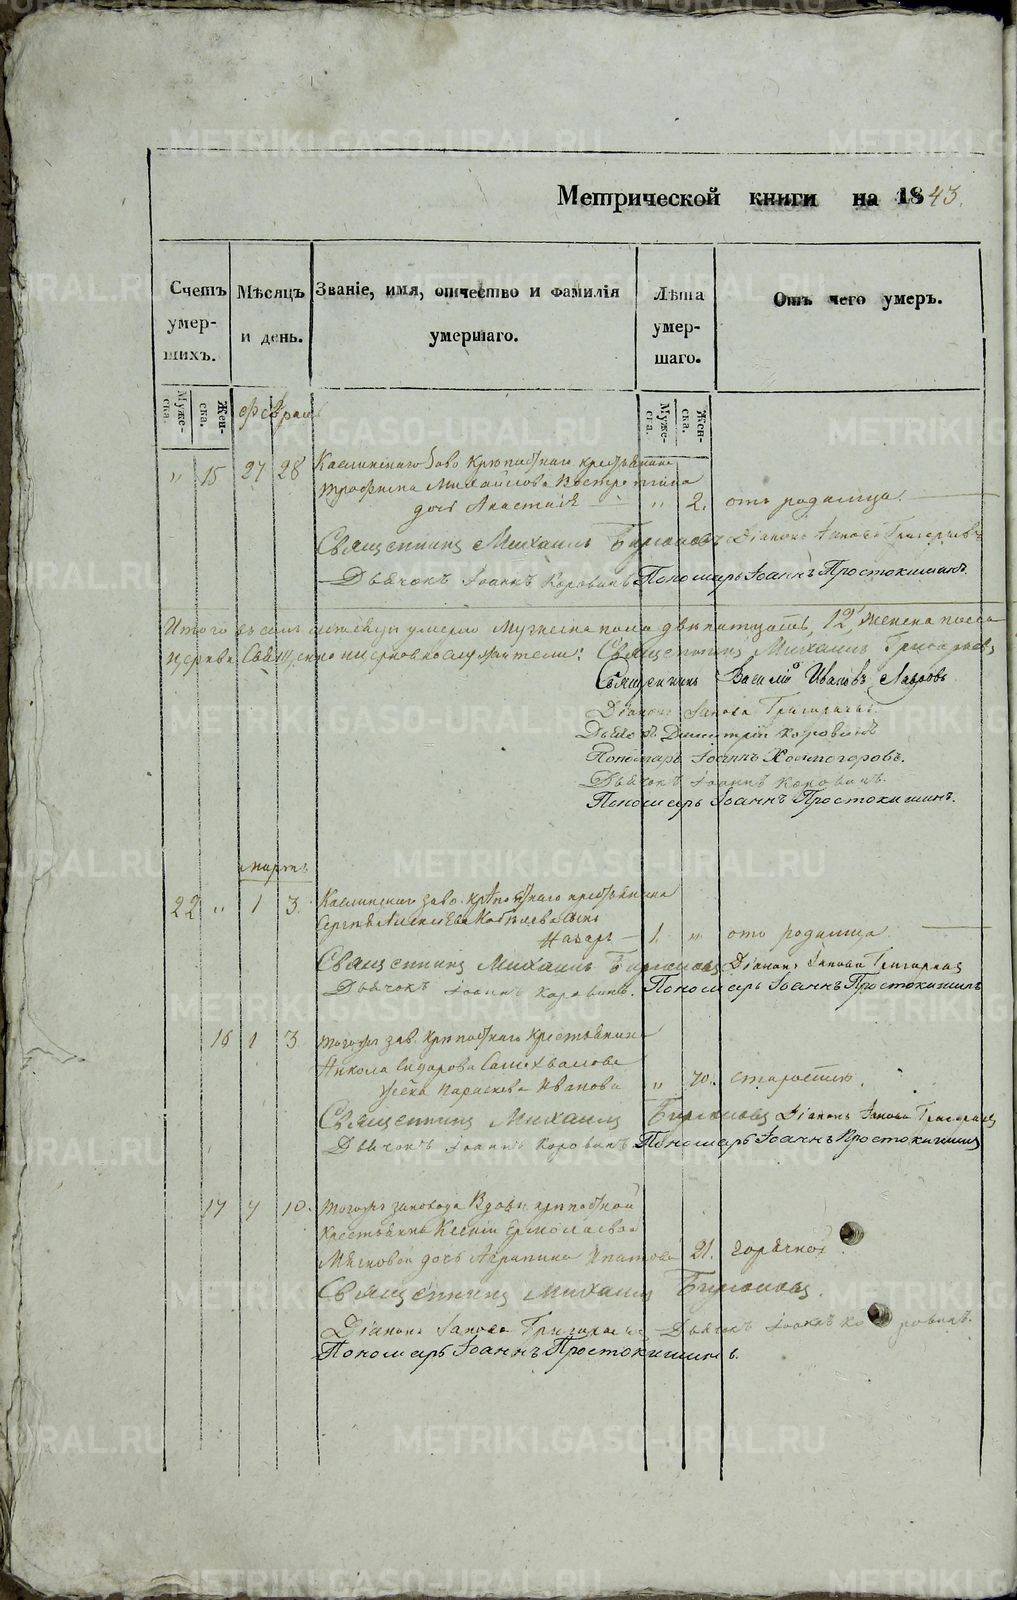 Метрической книги на 1843.
Счетъ умер-шихъ.
Мѣсяцъ и день.
Званіе, имя, отчество и фамилія умершаго.
Лѣта умер-шаго.
Отъ чего умеръ.
Муже-ска.
Жен-ска.
Муже-ска.
Жен-ска.
Февраль
„ 15 27 28 Каслинскаго заво крѣпостнаго крестьянина
Трофима Михайлова Востротина
дочь Анастасія — „ 2. отъ родимца.
Священникъ Михаилъ Бирюковъ Діаконъ Іаковъ Григорьевъ
Дьячокъ Іоаннъ Коровинъ Пономарь Іоаннъ Простокишинъ.
Итого въ семъ мѣсяцѣ умерло мужеска пола двѣнатцать, 12, женска
Священно церковнослужители: Священникъ Михаилъ
Священникъ Василій Ивановъ Лавровъ
Діаконъ Іаковъ Григорьевъ
Дьячокъ Димитрій Коровинъ
Пономарь Іоаннъ Холмогоровъ.
Дьячокъ Іоаннъ Коровинъ.
Пономарь Іоаннъ Простокишинъ.
мартъ
22 „ 1 3. Каслинскаго заво. крѣпостнаго крестьянина
Сергѣя Алексѣева сынъ
Назаръ — 1. „ отъ родимца
Священникъ Михаилъ Бирюковъ Діаконъ Іаковъ Григорьевъ
Дьячокъ Іоаннъ Коровинъ. Пономарь Іоаннъ Простокишинъ
16 1 3 тогожъ зав. крѣпостнаго крестьянина
Никола Сидорова
жена Параскева Иванова „ 70. старостію.
Священникъ Михаилъ Бирюковъ Діаконъ Іаковъ Григорьевъ
Дьячокъ Іоаннъ Коровинъ Пономарь Іоаннъ Простокишинъ
17 10. тогожъ завода Вдовы крѣпостной
крестьянки Ксеніи Ермолаевой
Мясковой дочь Агрипина Ипатова 21. горячкой
Священникъ Михаилъ Бирюковъ.
Діаконъ Іаковъ Григорьевъ Дьячокъ Іоаннъ Коровинъ.
Пономарь Іоаннъ Простокишинъ.
METRIKI.GASO-URAL.RU